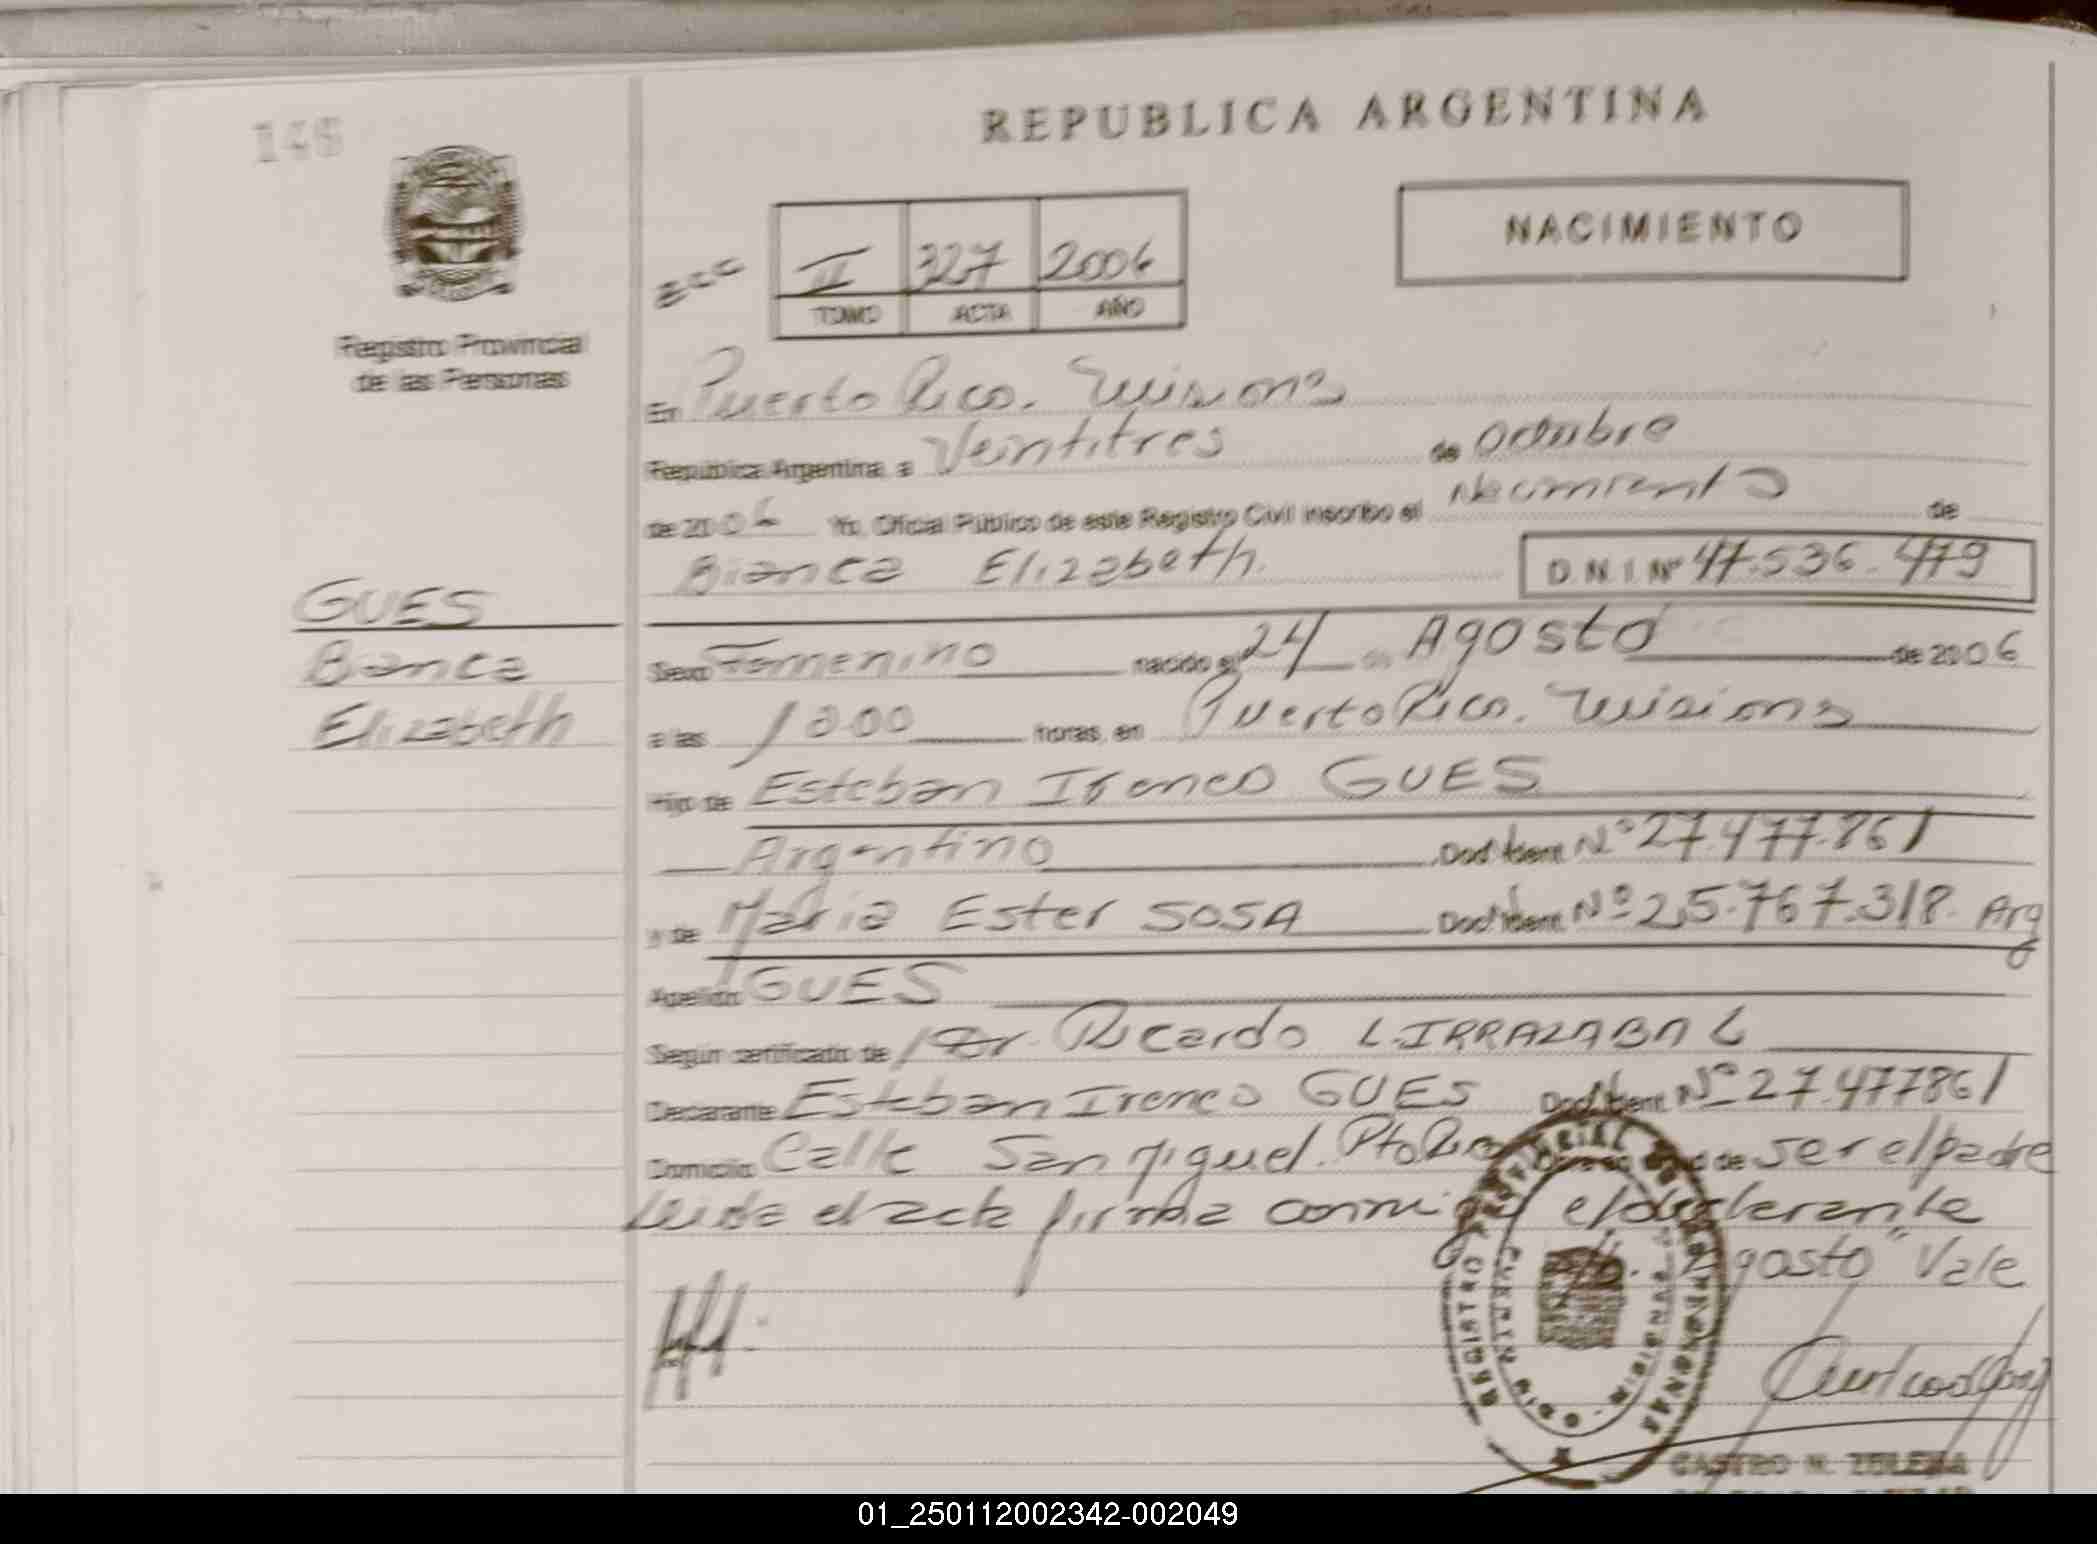 146
REPUBLICA ARGENTINA
NACIMIENTO
II 327 2006
TOMO ACTA AÑO
Registro Provincial
de las Personas
En Puerto Rico. Misiones
República Argentina, a Veintitres de Octubre
de 2006 Yo, Oficial Público de este Registro Civil inscribo el Nacimiento de
Bianca Elizabeth. D.N.I. Nº 47.536.479
GUES
Bianca
Elizabeth
Sexo Femenino nacido el 24 de Agosto de 2006
a las horas, en Puerto Rico. Misiones
Hijo de Esteban Ireneo GUES
Argentino Doc. Ident. Nº 27.477.861
y de Maria Ester SOSA Doc. Ident. Nº 25.767.318. Arg
Apellido GUES
Según certificado de Dr. Ricardo L. IRRAZABAL
Declarante Esteban Ireneo GUES Doc. Ident. Nº 27.477861
Domicilio Calle San Miguel. Pto Rico de ser el padre
Leida el acta firma conmigo el declarante
Agosto" Vale
REGISTRO PROVINCIAL DE LAS PERSONAS
PUERTO RICO - MISIONES
CASTRO N. ZULEMA
01_250112002342-002049